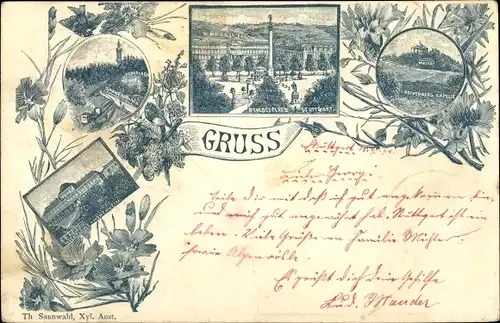 SCHLOSSPLATZ STUTTGART
ROTHENBERG KAPELLE
GRUSS
Stuttgart
Lieber Georg!
Teile dir mit daß ich gut angekommen bin,
und mich gut angewöhnt hab. Stuttgart ist ein
leben. Viele Grüße an Familie
sowie
Es grüßt dich dein Gehilfe
Lud. Mander
Th Sannwald, Xyl. Anst.